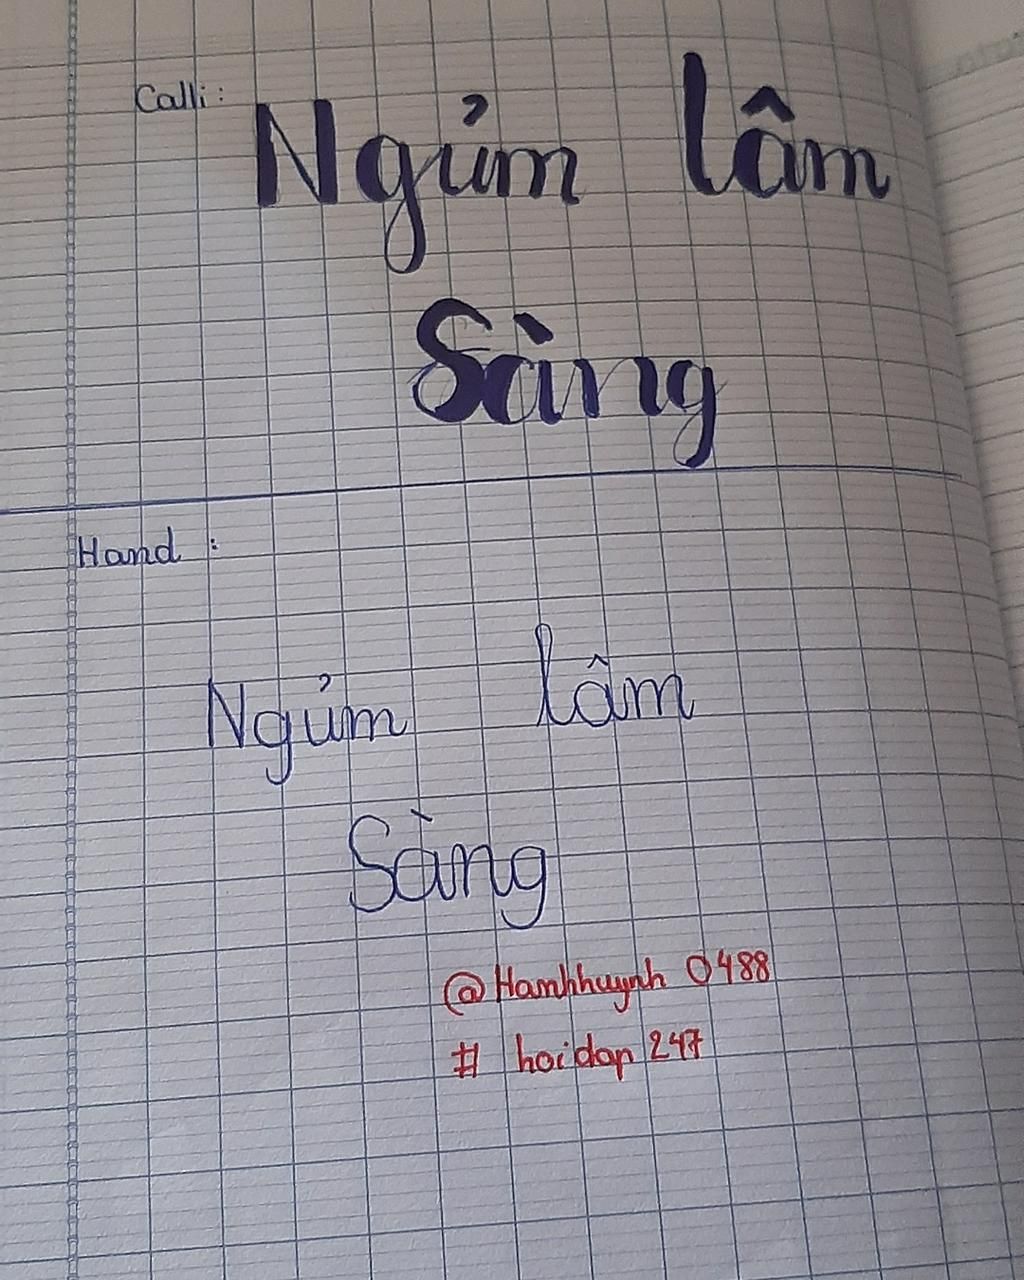 Calli :
Ngủm lâm
Sàng
Hand :
Ngủm lâm
Sàng
@Hamhhuynh 0488
# hoidap 247